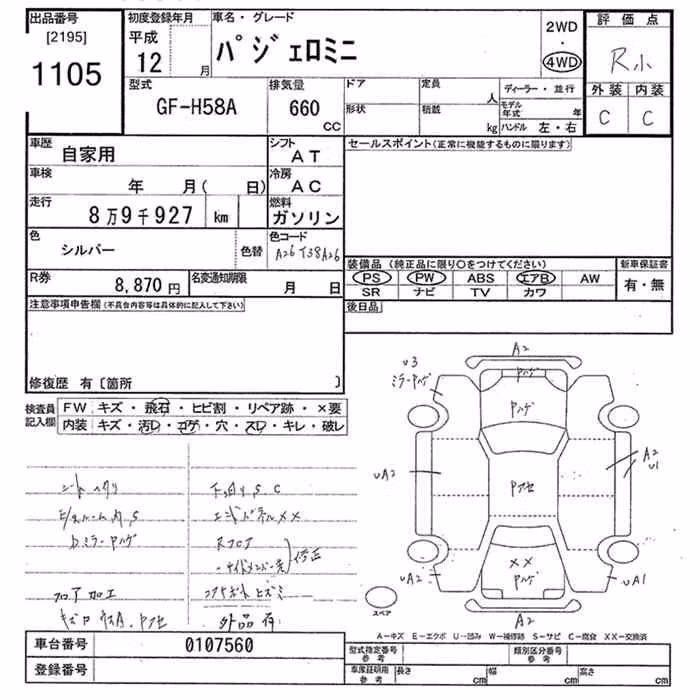 出品番号
[2195]
1105
初度登録年月
平成
12 月
車名・グレード
パジェロミニ
2WD
・
4WD
評価点
R小
外装 内装
C C
型式
GF-H58A
排気量
660
CC
ドア
形状
定員
人
積載
kg
ディーラー・並行
モデル年式 年
ハンドル 左・右
車歴
自家用
シフト
AT
セールスポイント(正常に機能するものに限ります)
車検
年 月( 日)
冷房
AC
走行
8万9千927 km
燃料
ガソリン
色
シルバー
色替
色コード
A26 T38A26
装備品 (純正品に限り○をつけてください)
PS PW ABS エアB AW
SR ナビ TV カワ
新車保証書
有・無
R券
8,870 円
名変通知期限
月 日
後日品
注意事項申告欄(不具合内容等は具体的に記入して下さい)
修復歴 有〔箇所 〕
検査員記入欄
FW キズ・飛石・ヒビ割・リペア跡・×要
内装 キズ・汚レ・コゲ・穴・スレ・キレ・破レ
シートヘタリ
E/gルーム内 S
bミラーワレ
フロア加工
下回り S C
エンドパネル××
Rフロア
サイドメンバー先
修正
外品有
A2
U3
UA2
A2
U1
××
UA2
UA1
A2
スペア
A-キズ E-エクボ U-凹み W-補修跡 S-サビ C-腐食 XX-交換済
車台番号
0107560
登録番号
型式指定番号
参考
類別区分番号
参考
車庫証明用
参考
長さ cm
幅 cm
高さ cm